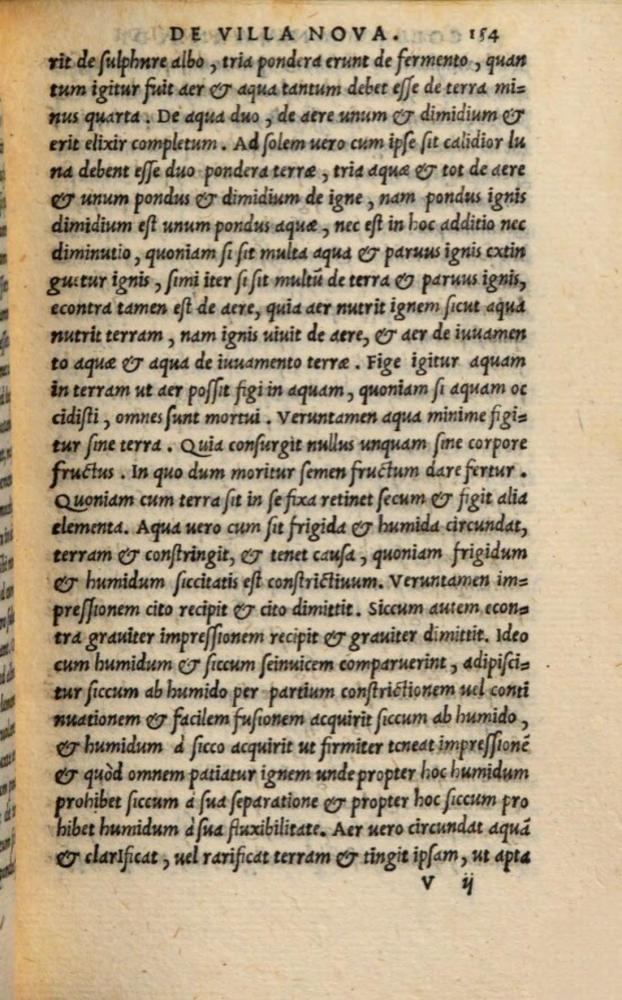 DE VILLA NOVA. 154
rit de sulphnre albo, tria pondera erunt de fermento, quan
tum igitur fuit aer & aqua tantum debet esse de terra mi=
nus quarta. De aqua duo, de aere unum & dimidium &
erit elixir completum. Ad solem uero cum ipse sit calidior lu
na debent esse duo pondera terræ, tria aquæ & tot de aere
& unum pondus & dimidium de igne, nam pondus ignis
dimidium est unum pondus aquæ, nec est in hoc additio nec
diminutio, quoniam si sit multa aqua & paruus ignis extin
guitur ignis, simi iter si sit multũ de terra & paruus ignis,
econtra tamen est de aere, quia aer nutrit ignem sicut aqua
nutrit terram, nam ignis uiuit de aere, & aer de iuuamen
to aquæ & aqua de iuuamento terræ. Fige igitur aquam
in terram ut aer possit figi in aquam, quoniam si aquam oc
cidisti, omnes sunt mortui. Veruntamen aqua minime figi=
tur sine terra. Quia consurgit nullus unquam sine corpore
fructus. In quo dum moritur semen fructum dare fertur.
Quoniam cum terra sit in se fixa retinet secum & figit alia
elementa. Aqua uero cum sit frigida & humida circundat,
terram & constringit, & tenet causa, quoniam frigidum
& humidum siccitatis est constrictiuum. Veruntamen im=
pressionem cito recipit & cito dimittit. Siccum autem econ=
tra grauiter impressionem recipit & grauiter dimittit. Ideo
cum humidum & siccum seinuicem comparuerint, adipisci=
tur siccum ab humido per partium constrictionem uel conti
nuationem & facilem fusionem acquirit siccum ab humido,
& humidum à sicco acquirit ut firmiter teneat impressionē
& quòd omnem patiatur ignem unde propter hoc humidum
prohibet siccum à sua separatione & propter hoc siccum pro
hibet humidum à sua fluxibilitate. Aer uero circundat aquā
& clarIficat, uel rarificat terram & tingit ipsam, ut apta
V ij